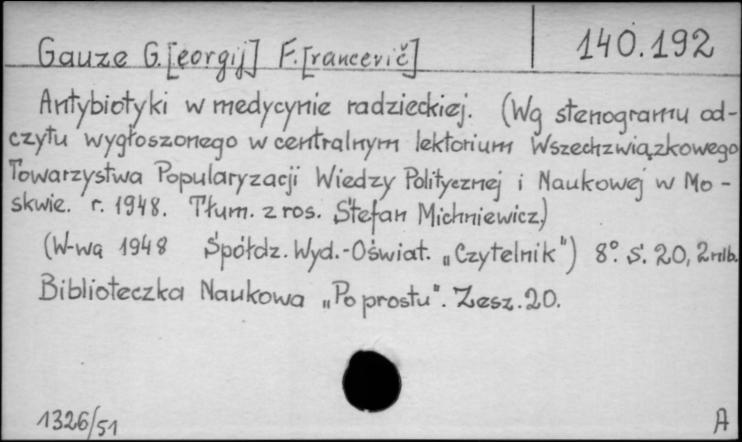 Gauze G.[eorgij] F.[rancevič] 140.192
Antybiotyki w medycynie radzieckiej. (Wg stenogramu od-
czytu wygłoszonego w centralnym lektorium Wszechzwiązkowego
Towarzystwa Popularyzacji Wiedzy Politycznej i Naukowej w Mo-
skwie. r. 1948. Tłum. z ros. Stefan Michniewicz)
(W-wa 1948 Spółdz. Wyd.-Oświat. „Czytelnik") 8° S. 20, 2 nlb.
Biblioteczka Naukowa „Po prostu". Zesz. 20.
1326/51 A